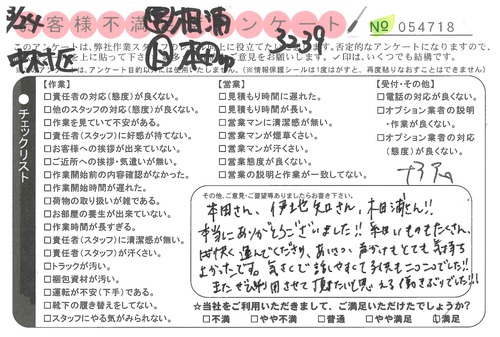 8/24
お客様不満足アンケート
№ 054718
中村区
32-39
このアンケートは、弊社作業スタッフの
否定的なアンケートになりますので、
ご意見をお願いします。✓印は、いくつでも結構です。
アンケート目的以外には使用いたしません。(※情報保護シールは1度がすと、再度貼りなおすことはできません)
チェックリスト
【作業】
□責任者の対応(態度)が良くない。
□他のスタッフの対応(態度)が良くない。
□作業を見ていて不安がある。
□責任者(スタッフ)に好感が持てない。
□お客様への挨拶が出来ていない。
□ご近所への挨拶・気遣いが無い。
□作業開始前の内容確認がなかった。
□作業開始時間が遅れた。
□荷物の取り扱いが雑である。
□お部屋の養生が出来ていない。
□作業時間が長すぎる。
□責任者(スタッフ)に清潔感が無い。
□責任者(スタッフ)が汗くさい。
□トラックが汚い。
□梱包資材が汚い。
□運転が不安(下手)である。
□靴下の履き替えをしてない。
□スタッフにやる気がみられない。
【営業】
□見積もり時間に遅れた。
□見積もり時間が長い。
□営業マンに清潔感が無い。
□営業マンが煙草くさい。
□営業マンが汗くさい。
□営業態度が良くない。
□営業の説明と作業が一致してない。
【受付・その他】
□電話の対応が良くない。
□オプション業者の説明
・作業が良くない。
□オプション業者の対応
(態度)が良くない。
その他、ご意見・ご要望等ありましたらお書き下さい。
本田さん、伊地知さん、木田浦さん!!
本当にありがとうございました!! 重いものもたくさん、
すばやく運んでくださり、あいさつ、声がけもとても気持ち
よかったです。気さくで話しやすくて子供もニコニコでした!!
またぜひ利用させて頂きたいと思える働きぶりでした!!
☆当社をご利用いただきまして、ご満足いただけたでしょうか?
□不満 □やや不満 □普通 □やや満足 □満足